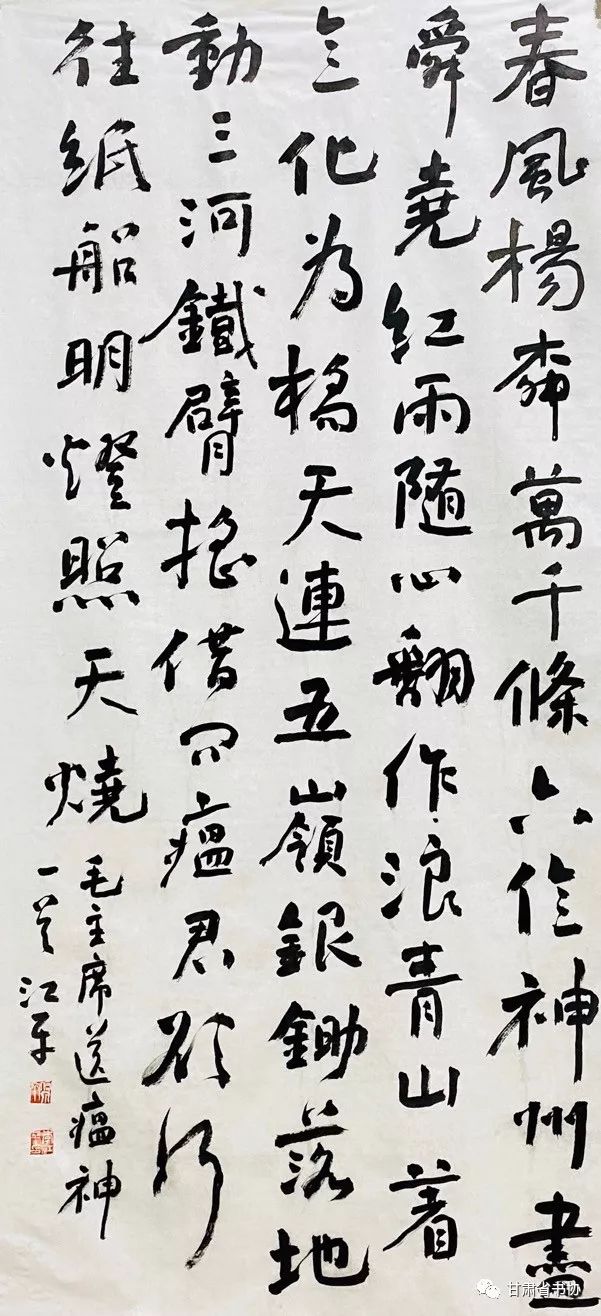 春風楊柳萬千條六億神州盡
舜堯紅雨隨心翻作浪青山着
意化為橋天連五嶺銀鋤落地
動三河鐵臂搖借問瘟君欲何
往紙船明燈照天燒
毛主席送瘟神
一首江平
甘肃省书协